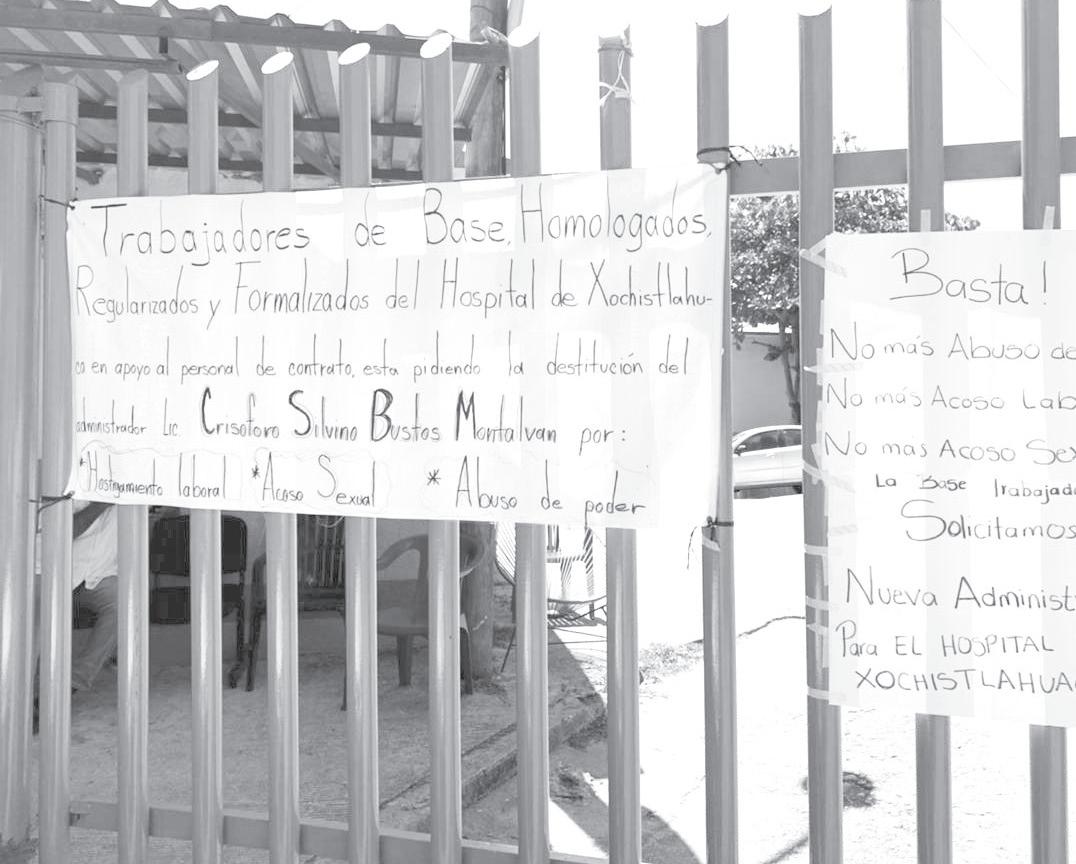 Trabajadores de Base, Homologados,
Regularizados y Formalizados del Hospital de Xochistlahu-
ca en apoyo al personal de contrato, esta pidiendo la destitución del
administrador Lic. Crisoforo Silvino Bustos Montalvan por:
*Hostigamiento laboral *Acoso Sexual * Abuso de poder
Basta!
No más Abuso de
No más Acoso Lab
No mas Acoso Sex
La Base Trabajad
Solicitamos
Nueva Administ
Para EL HOSPITAL
XOCHISTLAHUA